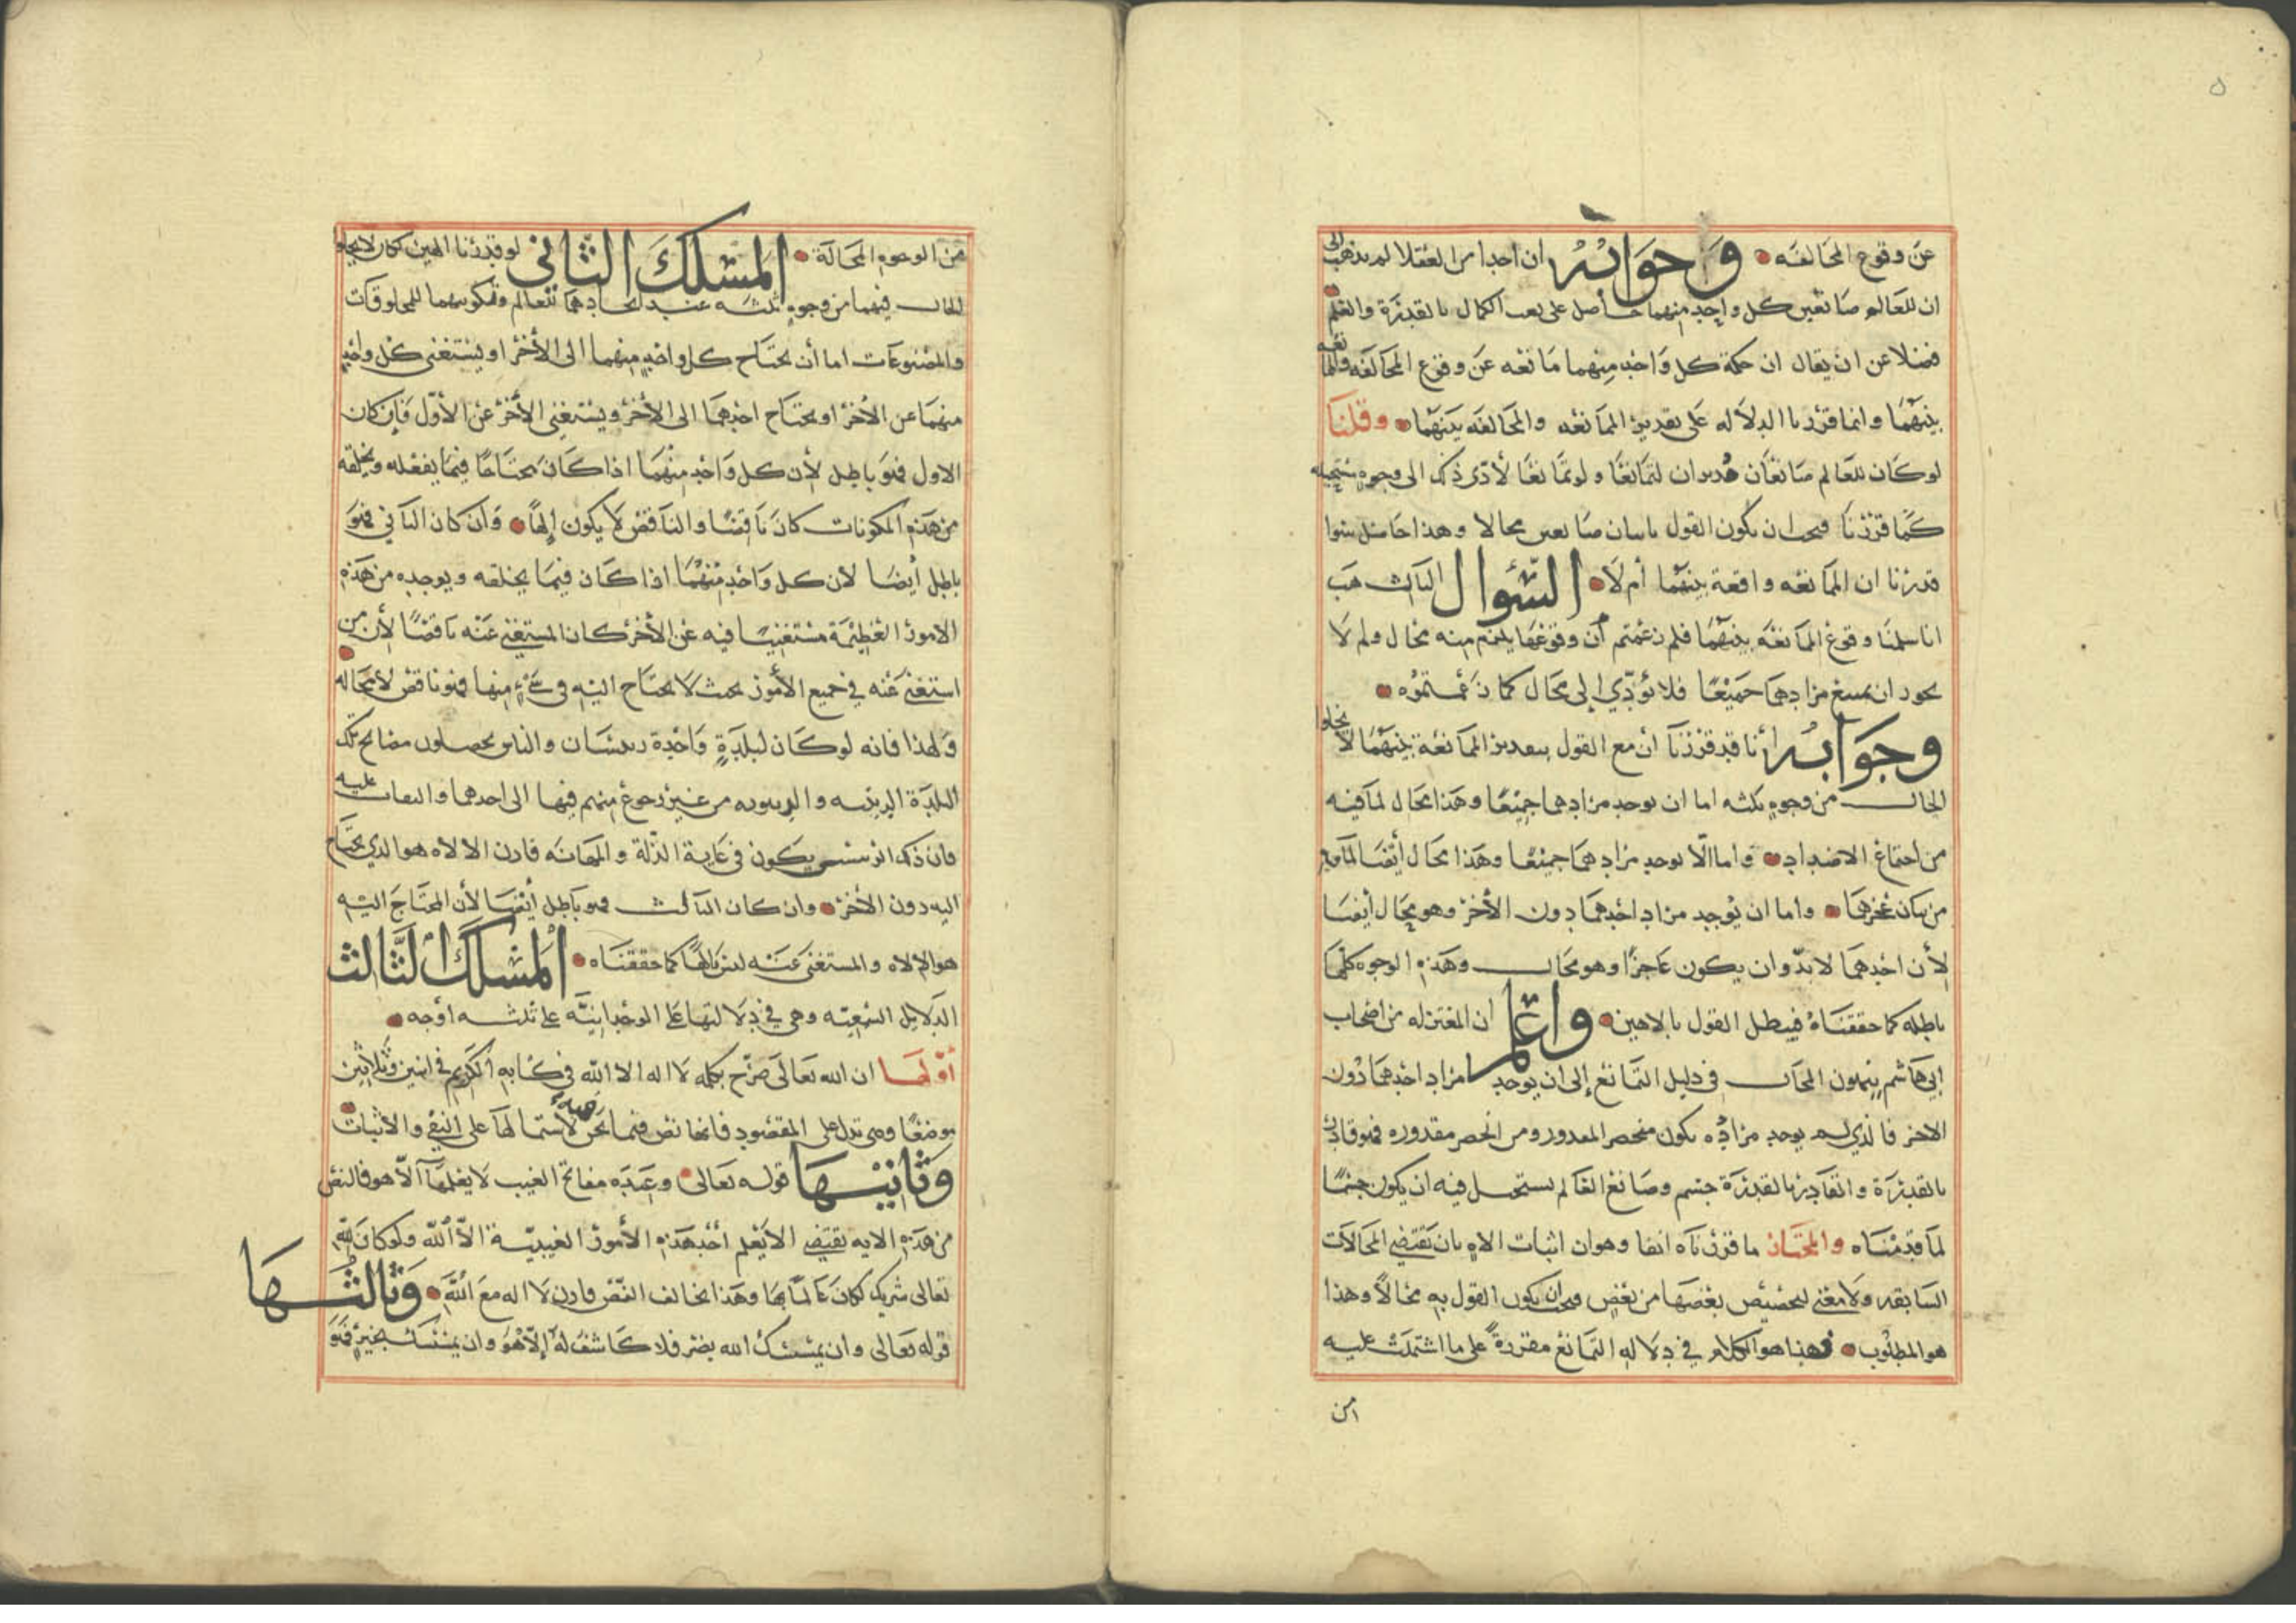 عن وقوع المخالفه وجوابه ان احدا من العقلا لم يذهب الى
ان للعالم صانعين كل واحد منهما حاصل على نعت الكمال بالقدرة والعلم
فضلا عن ان يقال ان حكمة كل واحد منهما مانعه عن وقوع المخالفه والممانعه
بينهما وانما قررنا الدلاله على تقدير الممانعه والمخالفه بينهما وقلنا
لو كان للعالم صانعان قديران لتمانعا ولو تمانعا لأدى ذلك الى وجوه مستحيله
كما قررنا فيجب ان يكون القول باثبات صانعين محالا وهذا حاصل سوا
قدرنا ان الممانعه واقعة بينهما أم لا السؤال الثالث هب
انا سلمنا وقوع الممانعه بينهما فلم زعمتم أن وقوعها يلزم منه محال ولم لا
يجوز ان يمتنع مرادهما جميعا فلا يؤدي إلى محال كما زعمتموه
وجوابه أنا قد قررنا ان مع القول بتقدير الممانعة بينهما لا يخلوا
الحال من وجوه ثلثه اما ان يوجد مرادهما جميعا وهذا محال لما فيه
من اجتماع الاضداد واما الا يوجد مرادهما جميعا وهذا محال أيضا لما فيه
من بيان عجزهما واما ان يوجد مراد احدهما دون الأخر وهو محال أيضا
لأن احدهما لابد وان يكون عاجزا وهو محال وهذه الوجوه كلها
باطله كما حققناه فيبطل القول بالاهين واعلم ان المعتزله من اصحاب
ابي هاشم ينهون الحال في دليل التمانع إلى ان يوجد مراد احدهما دون
الاخر فالذي لم يوجد مراده يكون منحصر المقدور ومن انحصر مقدوره فهو قادر
بالقدرة والقادر بالقدرة جسم وصانع العالم يستحيل فيه ان يكون جسما
لما قدمناه والمختار ما قررناه انفا وهو ان اثبات الاه ثان يقتضي المحالات
السابقه ولا معنى لتخصيص بعضها من بعض فيجب ان يكون القول به محالا وهذا
هو المطلوب فهذا هو الكلام في دلاله التمانع مقررة على ما اشتملت عليه
من
من الوجوه المحالة المسلك الثاني لو قدرنا الهين لكان لا يخلو
الحال فيهما من وجوه ثلثه عند ايجادهما للعالم وتكوينهما للمخلوقات
والمصنوعات اما أن يحتاج كل واحد منهما الى الأخر او يستغني كل واحد
منهما عن الأخر او يحتاج احدهما الى الأخر ويستغني الأخر عن الأول فإن كان
الاول فهو باطل لأن كل واحد منهما اذا كان محتاجا فيما يفعله ويخلقه
من هذه المكونات كان ناقصا والناقص لا يكون إلها وان كان الثاني فهو
باطل أيضا لان كل واحد منهما اذا كان فيما يخلقه ويوجده من هذه
الامور العظيمة مستغنيا فيه عن الأخر كان المستغنى عنه ناقصا لأن من
استغنى عنه في جميع الأمور بحيث لا يحتاج اليه في شيء منها فهو ناقص لا محاله
ولهذا فانه لو كان لبلدة واحدة رئيسان والناس يحصلون مصالح تلك
البلدة من غير رجوع منهم فيها الى احدهما والتفات عليه
فان ذلك الرئيس يكون في غاية الذلة والمهانه فاذن الالاه هو الذي يحتاج
اليه دون الأخر وان كان الثالث فهو باطل أيضا لأن المحتاج اليه
هو الالاه والمستغنى عنه ليس بالها كما حققناه المسلك الثالث
الدلايل السمعيه وهي في دلالتها على الوحدانيه على ثلثه أوجه
أولها ان الله تعالى صرح بكلمه لا اله الا الله في كتابه الكريم في اثنين وثلاثين
موضعا وهي تدل على المقصود فانها نص فيما نحن فيه لاشتمالها على النفي والاثبات
وثانيها قوله تعالى وعنده مفاتح الغيب لا يعلمها الا هو فالنص
من هذه الايه يقتضي الا يعلم أحد هذه الأمور الغيبيه الا الله ولو كان لله
تعالى شريك لكان عالما بها وهذا يخالف النص فاذن لا اله مع الله وثالثها
قوله تعالى وان يمسسك الله بضر فلا كاشف له إلا هو وان يمسسك بخير فهو